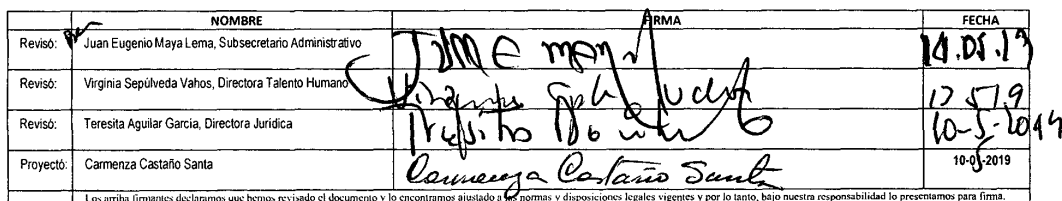 NOMBRE FIRMA FECHA
Revisó: Juan Eugenio Maya Lema, Subsecretario Administrativo 14.05.19
Revisó: Virginia Sepúlveda Vahos, Directora Talento Humano
Revisó: Teresita Aguilar García, Directora Jurídica 10-5-2019
Proyectó: Carmenza Castaño Santa Carmenza Castaño Santa 10-05-2019
Los arriba firmantes declaramos que hemos revisado el documento y lo encontramos ajustado a las normas y disposiciones legales vigentes y por lo tanto, bajo nuestra responsabilidad lo presentamos para firma.